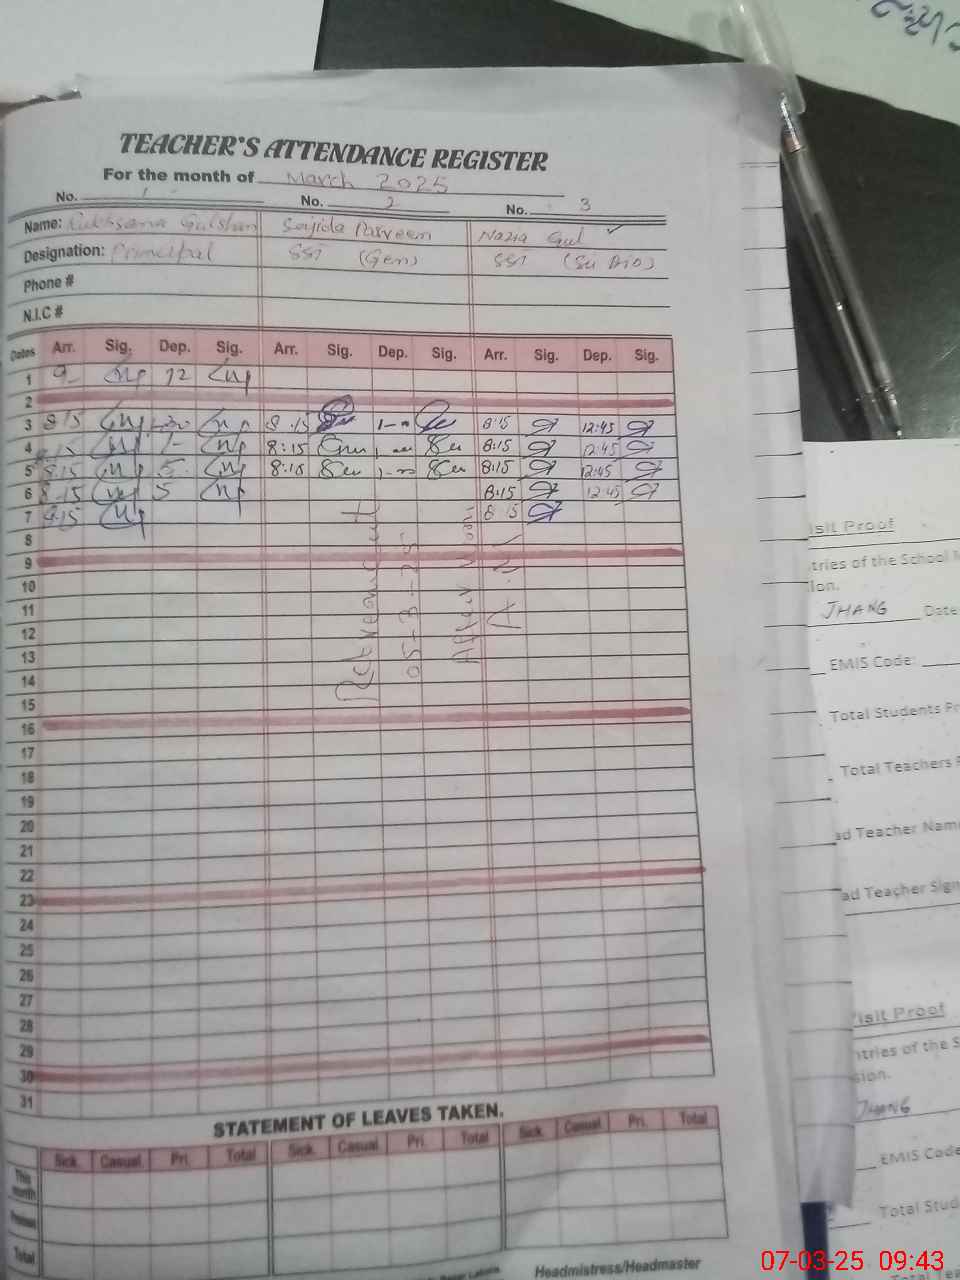 TEACHER'S ATTENDANCE REGISTER
For the month of March 2025
No. 1 No. 2 No. 3
Name: Rukhsana Gulshan Sajida Parveen Nazia Gul
Designation: Principal SST (Gen) SST (Sci Bio)
Phone #
N.I.C #
Dates Arr. Sig. Dep. Sig. Arr. Sig. Dep. Sig. Arr. Sig. Dep. Sig.
1 9 12
2
3 8.15 8.15 8:15 12:45
4 8:15 8:15 12:45
5 8.15 5 8:15 8:15 12:45
6 8.15 5 8:15 12:45
7 8:15
8
9
10
11
12
13
14
15
16
17
18
19
20
21
22
23
24
25
26
27
28
29
30
31
05-3-25
After Noon
STATEMENT OF LEAVES TAKEN.
Sick Casual Pri. Total Sick Casual Pri. Total Sick Casual Pri. Total
This month
Previous
Total
Headmistress/Headmaster
isit Proof
tries of the School
ion.
JHANG Date
EMIS Code:
Total Students Pr
Total Teachers
ad Teacher Name
ad Teacher Sign
isit Proof
ntries of the S
sion.
JHANG
EMIS Code
Total Stud
07-03-25 09:43